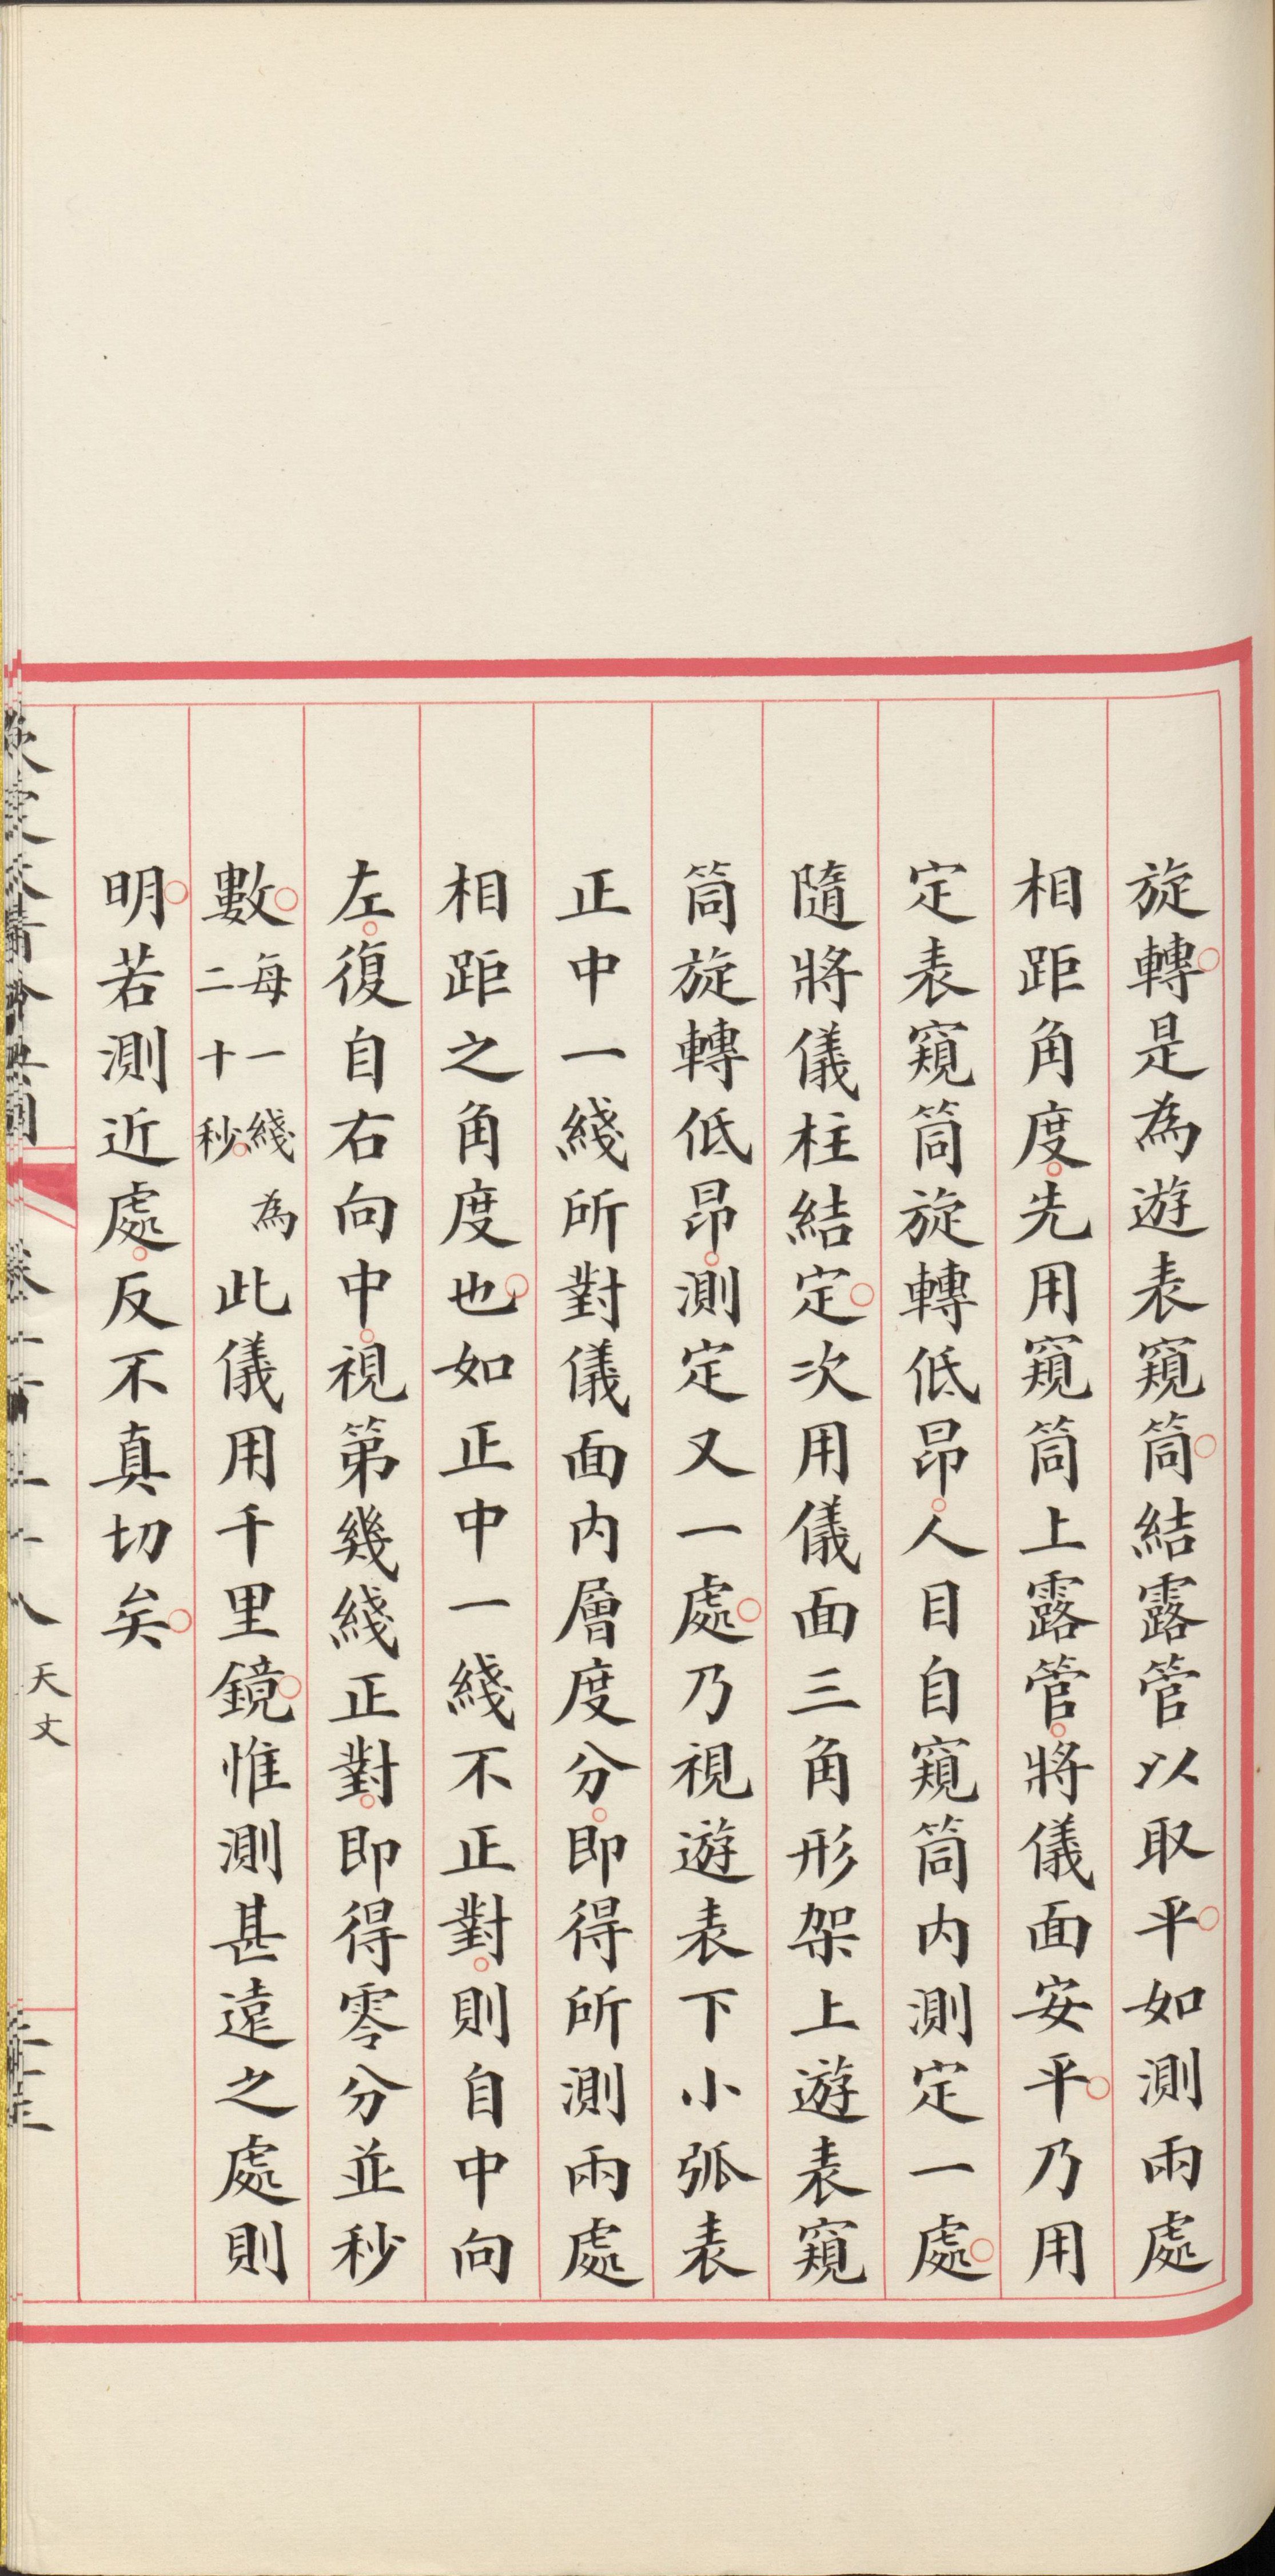 旋轉。是為遊表窺筒。結露管以取平。如測兩處
相距角度。先用窺筒上露管。將儀面安平。乃用
定表窺筒旋轉低昂。人目自窺筒内測定一處。
隨將儀柱結定。次用儀面三角形架上遊表窺
筒旋轉低昂。測定又一處。乃視遊表下小弧表
正中一綫所對儀面内層度分。即得所測兩處
相距之角度也。如正中一綫不正對。則自中向
左。復自右向中。視第幾綫正對。即得零分並秒
數。每一綫為二十秒。此儀用千里鏡。惟測甚遠之處則
明。若測近處。反不真切矣。
天文